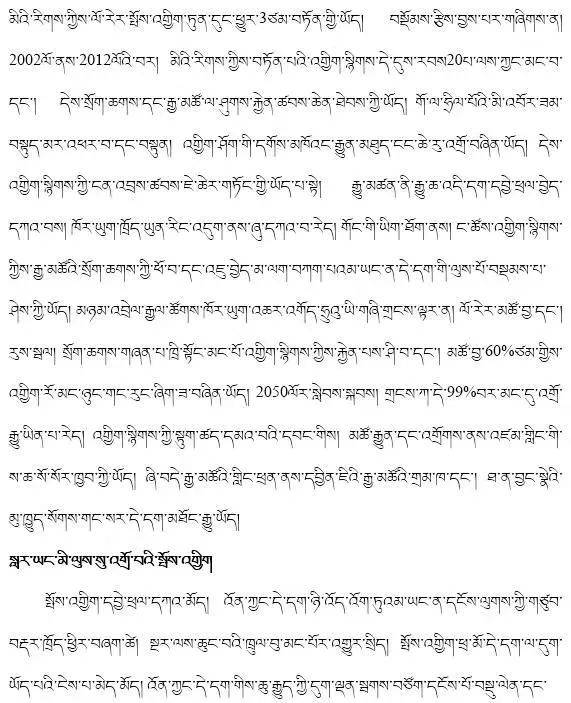 མིའི་རིགས་ཀྱིས་ལོ་རེར་སྤོས་འགྱིག་ཏུན་དུང་ཕྱུར་3ཙམ་བཏོན་གྱི་ཡོད། བསྡོམས་རྩིས་བྱས་པར་གཞིགས་ན།
2002ལོ་ནས་2012ལོའི་བར། མིའི་རིགས་ཀྱིས་བཏོན་པའི་འགྱིག་སྙིགས་དེ་དུས་རབས20པ་ལས་ཀྱང་མང་བ་
དང་། དེས་སྲོག་ཆགས་དང་རྒྱ་མཚོ་ལ་ཤུགས་རྐྱེན་ཚབས་ཆེན་ཐེབས་ཀྱི་ཡོད། གོ་ལ་ཧྲིལ་པོའི་མི་འབོར་ཟམ་
བསྟུད་མར་འཕར་བ་དང་བསྟུན། འགྱིག་ཤོག་གི་དགོས་མཁོའང་རྒྱུན་མཐུད་ངང་ཆེ་རུ་འགྲོ་བཞིན་ཡོད། དེས་
འགྱིག་སྙིགས་ཀྱི་ངན་འབྲས་ཚབས་ཇེ་ཆེར་གཏོང་གྱི་ཡོད་པ་སྟེ། རྒྱུ་མཚན་ནི་རྒྱུ་ཆ་འདི་དག་དབྱེ་ཕྲལ་བྱེད་
དཀའ་བས། ཁོར་ཡུག་ཁྲོད་ཡུན་རིང་འདུག་ནས་ཞུ་དཀའ་བ་རེད། གོང་གི་ཡིག་ཐོག་ནས། ང་ཚོས་འགྱིག་སྙིགས་
ཀྱིས་རྒྱ་མཚོའི་སྲོག་ཆགས་ཀྱི་ཕོ་བ་དང་འཇུ་བྱེད་མ་ལག་བཀག་པའམ་ཡང་ན་དེ་དག་གི་ལུས་པོ་བསྡམས་པ་
ཤེས་ཀྱི་ཡོད། མཉམ་འབྲེལ་རྒྱལ་ཚོགས་ཁོར་ཡུག་འཆར་འགོད་ཧྲུའུ་ཡི་གཞི་གྲངས་ལྟར་ན། ལོ་རེར་མཚོ་བྱ་དང་།
རུས་སྦལ། སྲོག་ཆགས་གཞན་པ་ཁྲི་སྟོང་མང་པོ་འགྱིག་སྙིགས་ཀྱིས་རྐྱེན་པས་ཤི་བ་དང་། མཚོ་བྱ་60%ཙམ་གྱིས་
འགྱིག་རོ་མང་ཉུང་གང་རུང་ཞིག་ཟ་བཞིན་ཡོད། 2050ལོར་སླེབས་སྐབས། གྲངས་ཀ་དེ་99%བར་མང་དུ་འགྲོ་
རྒྱུ་ཡིན་པ་རེད། འགྱིག་སྙིགས་ཀྱི་སྟུག་ཚད་དམའ་བའི་དབང་གིས། མཚོ་རྒྱུན་དང་འགྲོགས་ནས་འཛམ་གླིང་གི་
ས་ཆ་སོ་སོར་ཁྱབ་ཀྱི་ཡོད། ཞི་བདེ་རྒྱ་མཚོའི་གླིང་ཕྲན་ནས་དབྱིན་ཇིའི་རྒྱ་མཚོའི་གྲམ་ཁ་དང་། ཐ་ན་བྱང་སྣེའི་
མུ་ཁྱུད་སོགས་གང་སར་དེ་དག་མཐོང་རྒྱུ་ཡོད།
སླར་ཡང་མི་ལུས་སུ་འགྲོ་བའི་སྤོས་འགྱིག
སྤོས་འགྱིག་དབྱེ་ཕྲལ་དཀའ་མོད། འོན་ཀྱང་དེ་དག་ཉི་འོད་འོག་ཏུའམ་ཡང་ན་དངོས་ལུགས་ཀྱི་གཙུབ་
བརྡར་ཁྲོད་ཕྱིར་བཞག་ཚེ། སྔར་ལས་ཆུང་བའི་ཁྲུལ་བུ་མང་པོར་འགྱུར་སྲིད། སྤོས་འགྱིག་ཕྲ་མོ་དེ་དག་ལ་དུག་
ཡོད་པའི་ངེས་པ་མེད་མོད། འོན་ཀྱང་དེ་དག་གིས་ཆུ་རྒྱུད་ཀྱི་དུག་ལྡན་སྦགས་བཙོག་དངོས་པོ་བསྡུ་ལེན་དང་